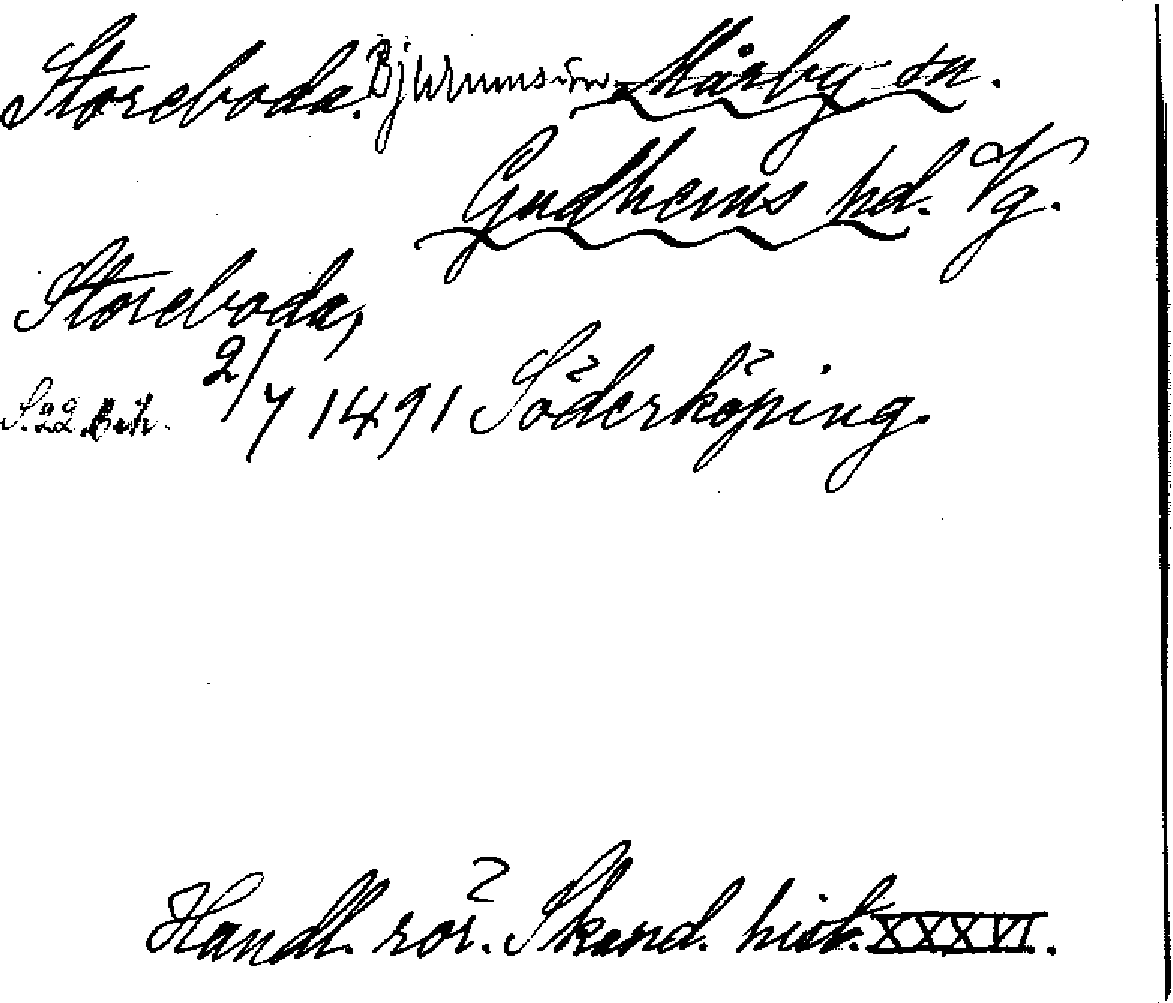 Storeboda. Bjurums sn. Mårby sn.
Gudhems hd. Vg.
Storeboda,
S. 22 Bih. 2/7 1491 Söderköping.
Handl. rör. Skand. hist. XXXVI.